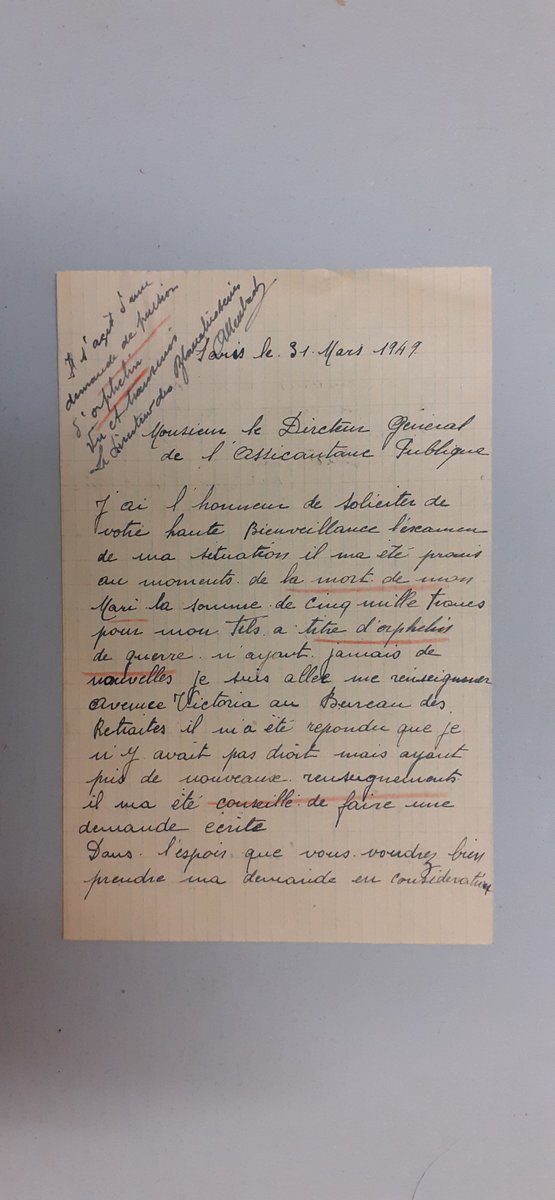 Il s'agit d'une
demande de pension
d'orphelin
Vu et transmis
Le Directeur des Blanchisseries
Paris le 31 Mars 1949
Monsieur le Dircteur Général
de l'Assicantance Publique
J'ai l'honneur de soliciter de
votre haute Bienveillance l'éxamen
de ma situation il ma été promis
au moments de la mort de mon
Mari la somme de Cinq mille francs
pour mon fils a titre d'orphelin
de guerre n'ayant jamais de
nouvelles je suis allée me renseigner
avenue Victoria au Bureau des
Retraites il m'a été repondu que je
n'y avait pas droit mais ayant
pris de nouveaux renseignements
il ma été conseillé de faire une
demande écrite
Dans l'espoir que vous voudrez bien
prendre ma demande en considération